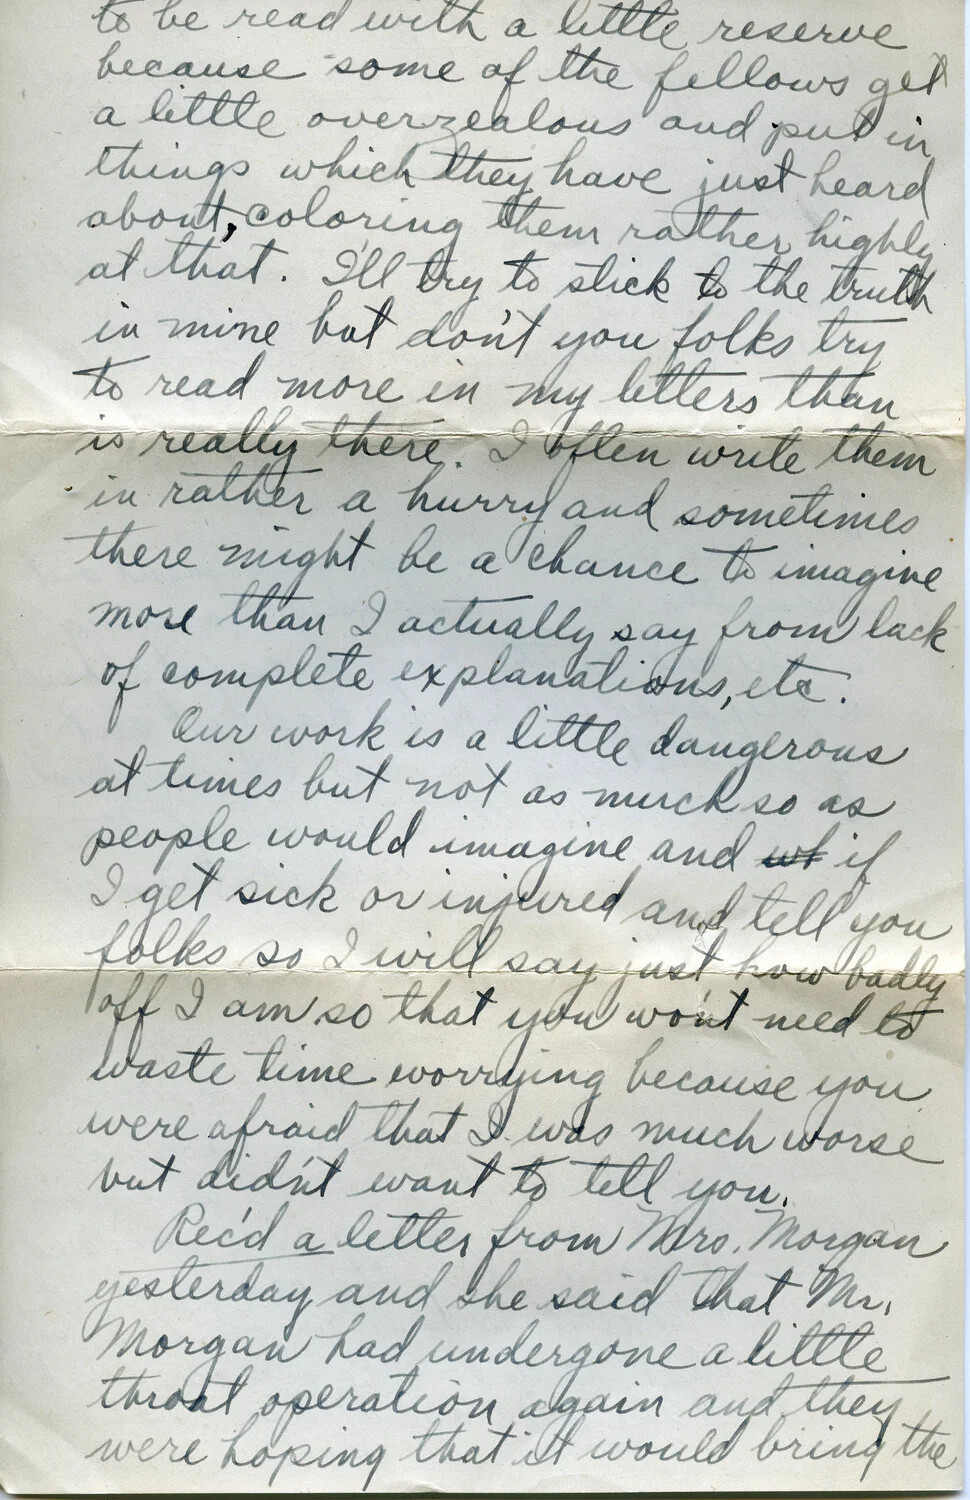 to be read with a little reserve
because some of the fellows get
a little overzealous and put in
things which they have just heard
about, coloring them rather highly
at that. I'll try to stick to the truth
in mine but don't you folks try
to read more in my letters than
is really there. I often write them
in rather a hurry and sometimes
there might be a chance to imagine
more than I actually say from lack
of complete explanations, etc.
Our work is a little dangerous
at times but not as much so as
people would imagine and if
I get sick or injured and tell you
folks so I will say just how badly
off I am so that you won't need to
waste time worrying because you
were afraid that I was much worse
but didn't want to tell you.
Rec'd a letter from Mrs. Morgan
yesterday and she said that Mr.
Morgan had undergone a little
throat operation again and they
were hoping that it would bring the